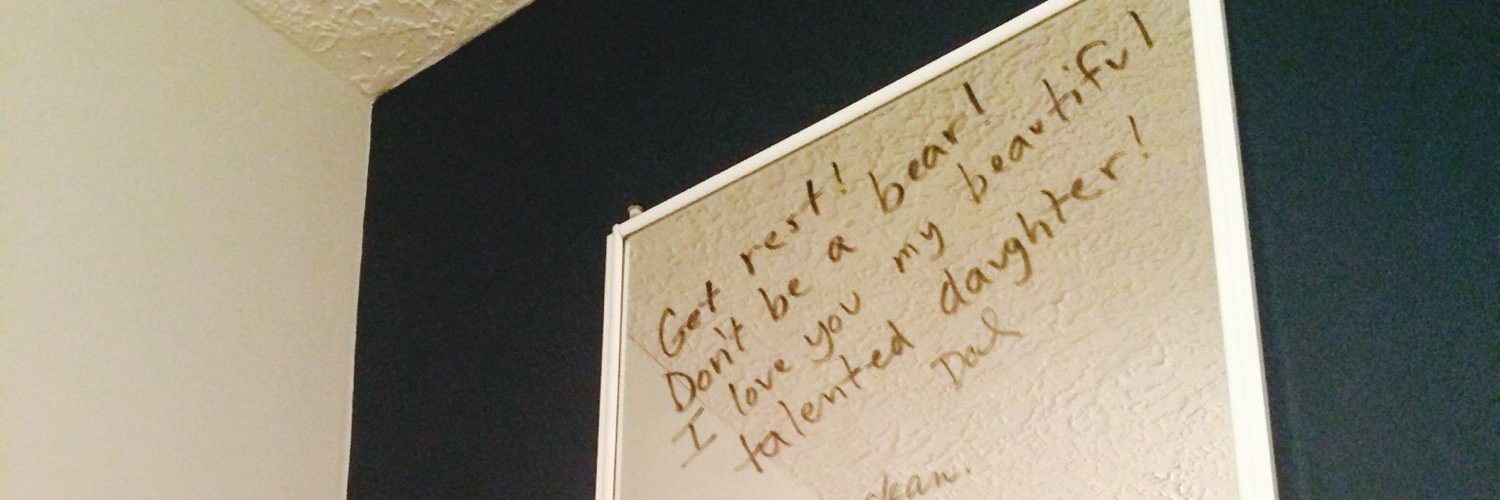 Get rest!
Don't be a bear!
I love you my beautiful
talented daughter!
Dad
clean.